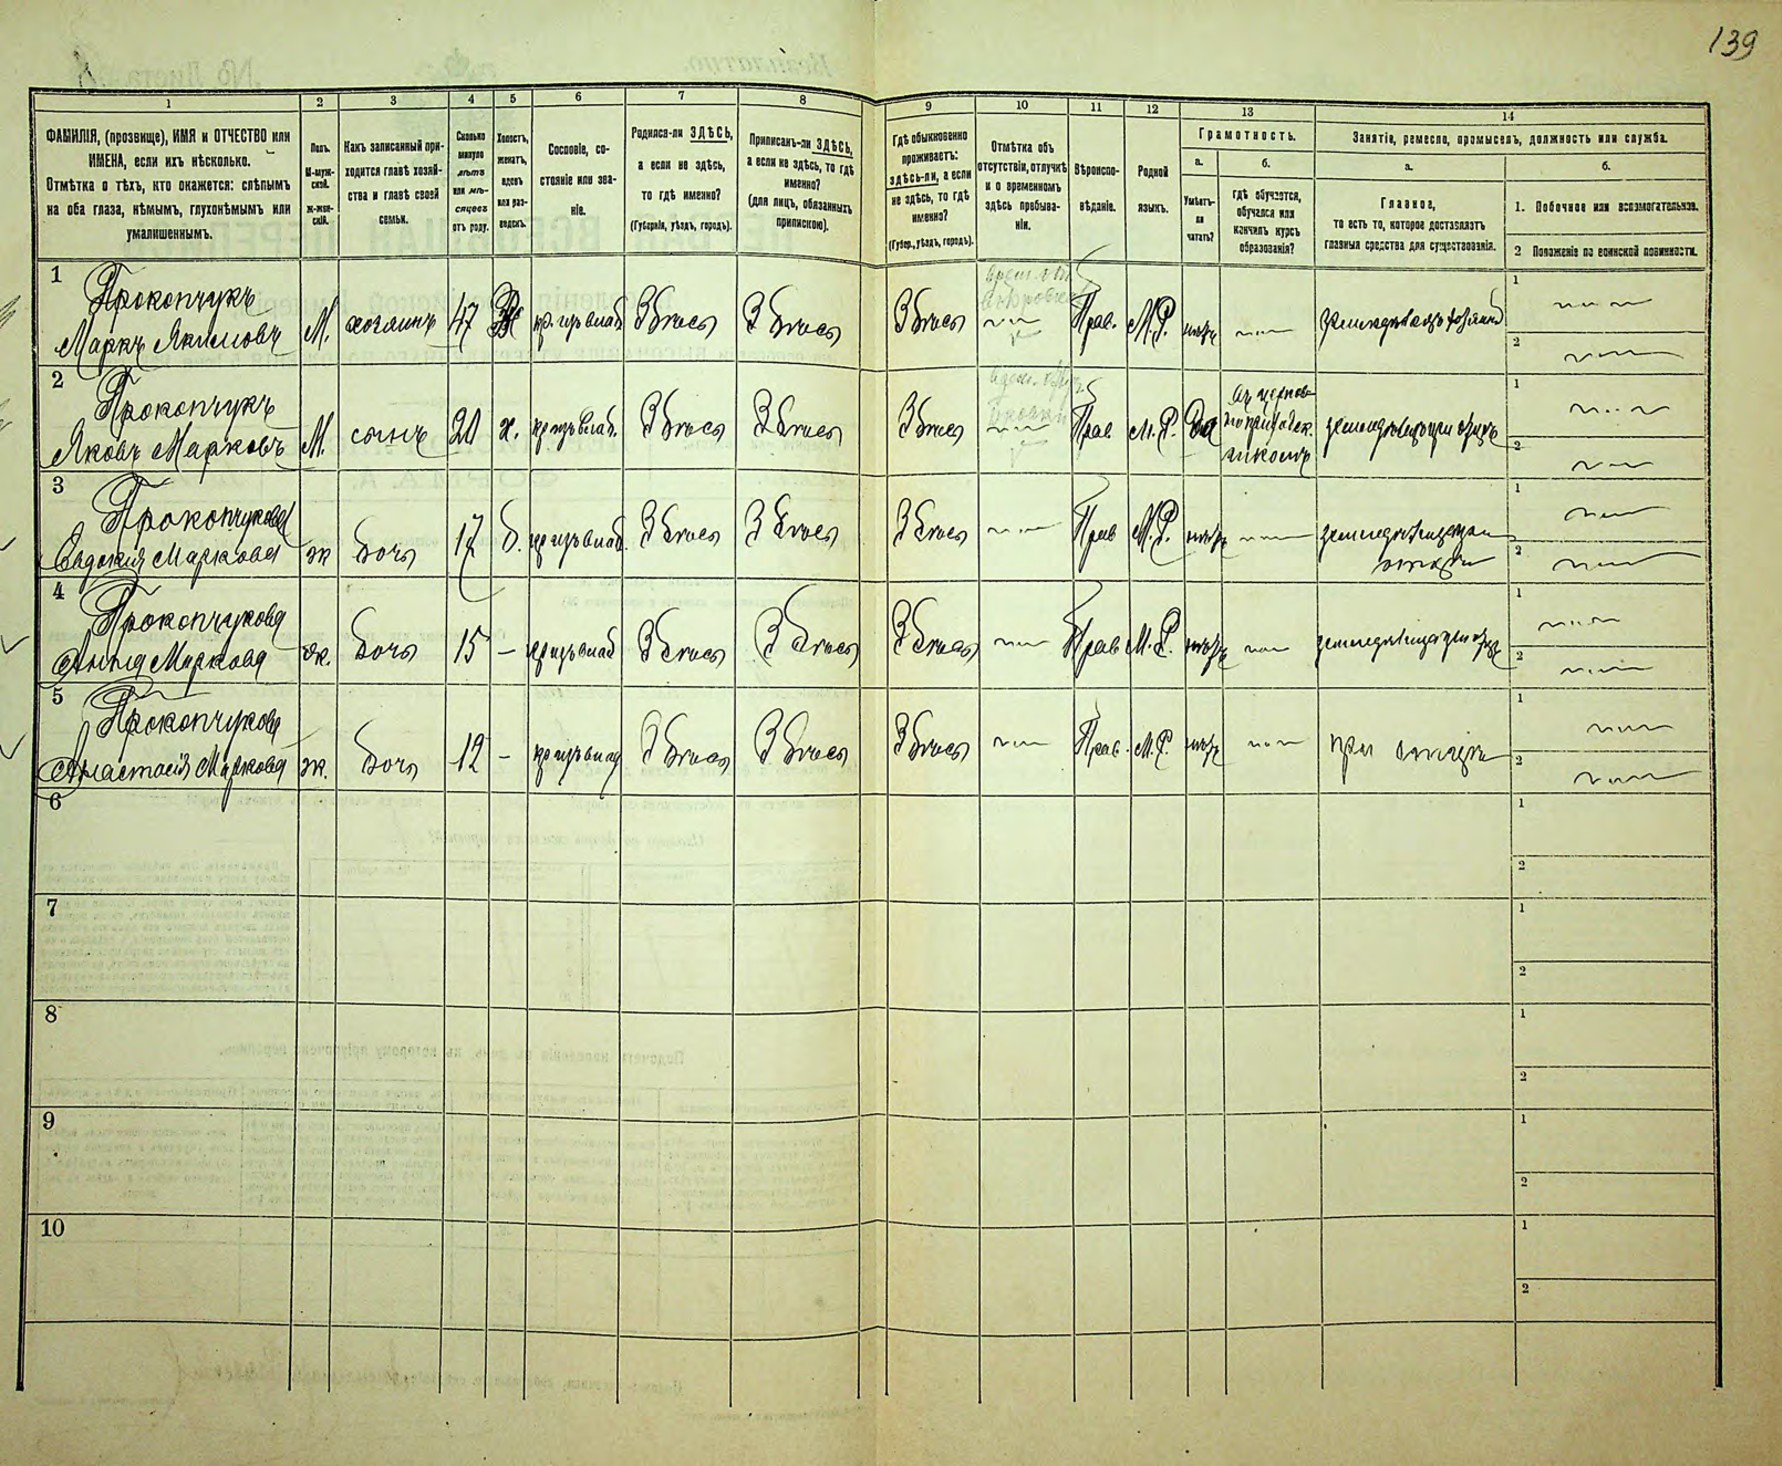 139
1
2
3
4
5
6
7
8
9
10
11
12
13
14
ФАМИЛІЯ, (прозвище), ИМЯ и ОТЧЕСТВО или
ИМЕНА, если ихъ нѣсколько.
Отмѣтка о тѣхъ, кто окажется: слѣпымъ
на оба глаза, нѣмымъ, глухонѣмымъ или
умалишеннымъ.
Полъ.
М-муж-
ской.
Ж-жен-
скій.
Какъ записанный при-
ходится главѣ хозяй-
ства и главѣ своей
семьи.
Сколько
минуло
лѣтъ
или мѣ-
сяцевъ
отъ роду.
Холостъ,
женатъ,
вдовъ
или раз-
веденъ.
Сословіе, со-
стояніе или зва-
ніе.
Родился-ли ЗДѢСЬ,
а если не здѣсь,
то гдѣ именно?
(Губернія, уѣздъ, городъ).
Приписанъ-ли ЗДѢСЬ,
а если не здѣсь, то гдѣ
именно?
(для лицъ, обязанныхъ
припискою).
Гдѣ обыкновенно
проживаетъ:
здѣсь-ли, а если
не здѣсь, то гдѣ
именно?
(Губер., уѣздъ, городъ).
Отмѣтка объ
отсутствіи, отлучкѣ
и о временномъ
здѣсь пребыва-
ніи.
Вѣроиспо-
вѣданіе.
Родной
языкъ.
Грамотность.
а.
Умѣетъ-
ли
читать?
б.
Гдѣ обучается,
обучался или
кончилъ курсъ
образованія?
Занятіе, ремесло, промыселъ, должность или служба.
а.
Главное,
то есть то, которое доставляетъ
главныя средства для существованія.
б.
1. Побочное или вспомогательное.
2 Положеніе по воинской повинности.
1
Прокопчукъ
Маркъ Якимовъ М. хозяинъ 47 Здѣсь Здѣсь Здѣсь Прав. М.Р. нѣтъ
1
2
2
Прокопчукъ
Яковъ Марковъ М. сынъ 20 х. Здѣсь Здѣсь Здѣсь Прав М.Р. да
1
2
3
Прокопчукова
Евдокія Маркова ж дочь 17 д. Здѣсь Здѣсь Здѣсь Прав М.Р. нѣтъ
1
2
4
Прокопчукова
Анна Маркова ж. дочь 15 – Здѣсь Здѣсь Здѣсь Прав М.Р. нѣтъ
1
2
5
Прокопчукова
Анастасія Маркова ж. дочь 12 – Здѣсь Здѣсь Здѣсь Прав. М.Р. нѣтъ при отцѣ
1
2
6
1
2
7
1
2
8
1
2
9
1
2
10
1
2